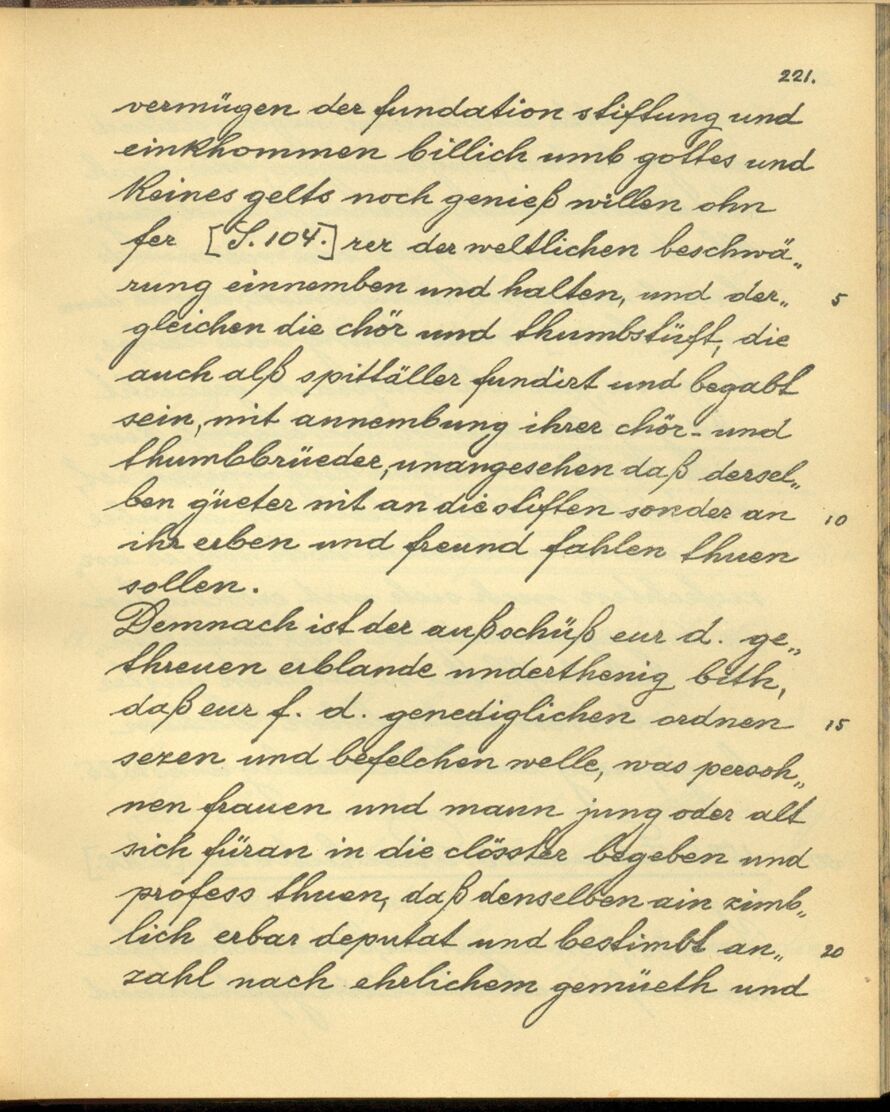 221.
vermügen der fundation stiftung und
einkhommen billich umb gottes und
keines gelts noch genieß willen ohn
fer [S. 104.] rer der weltlichen beschwä„
rung einnemben und halten, und der„ 5
gleichen die chör und thumbstüft, die
auch alß spittäller fundirt und begabt
sein, mit annembung ihrer chör- und
thumbbrüeder, unangesehen daß dersel„
ben güeter nit an die stiften sonder an 10
ihr erben und freund fahlen thuen
sollen.
Demnach ist der außschüß eur d. ge„
threuen erblande underthenig bith,
daß eur f. d. genediglichen ordnen 15
sezen und befelchen welle, was persoh„
nen frauen und mann jung oder alt
sich füran in die clösster begeben und
profess thuen, daß denselben ain zimb„
lich erbar deputat und bestimbt an„ 20
zahl nach ehrlichem gemüeth und